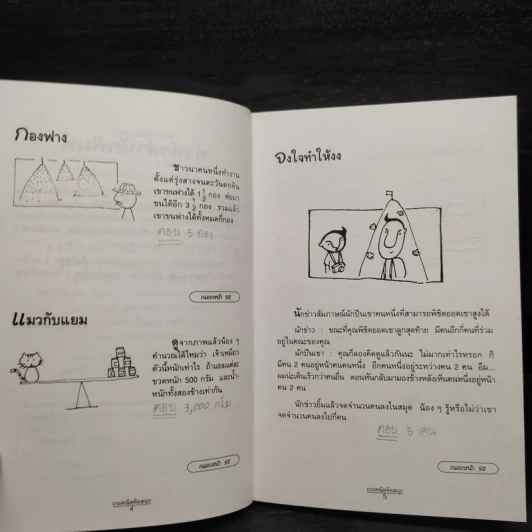 กองฟาง
ชาวนาคนหนึ่งทำงาน
ตั้งแต่รุ่งสางจนตะวันตกดิน
เขาขนฟางได้ 1 1/2 กอง ต่อมา
ขนได้อีก 3 1/2 กอง รวมแล้ว
เขาขนฟางได้ทั้งหมดกี่กอง
ตอบ 5 กอง
เฉลยหน้า 92
แมวกับแยม
ดูจากภาพแล้วน้อง ๆ
คำนวณได้ไหมว่า เจ้าเหมียว
ตัวนี้หนักเท่าไร ถ้าแยมแต่ละ
ขวดหนัก 500 กรัม และน้ำ-
หนักทั้งสองข้างเท่ากัน
ตอบ 3,000 กรัม
เฉลยหน้า 92
เกมคณิตคิดสนุก
4
จงใจทำให้งง
นักข่าวสัมภาษณ์นักปีนเขาคนหนึ่งที่สามารถพิชิตยอดเขาสูงได้
นักข่าว : ขณะที่คุณพิชิตยอดเขาลูกสุดท้าย มีคนอีกกี่คนที่ร่วม
อยู่ในคณะของคุณ
นักปีนเขา : คุณก็ลองคิดดูแล้วกันนะ ไม่มากเท่าไรหรอก ก็
มีคน 2 คนอยู่หน้าคนคนหนึ่ง อีกคนหนึ่งอยู่ระหว่างคน 2 คน อืม...
ผมน่ะเดินเร็วกว่าคนอื่น ตอนหันกลับมามองข้างหลังเห็นคนหนึ่งอยู่หน้า
คน 2 คน
นักข่าวยิ้มแล้วจดจำนวนคนลงในสมุด น้อง ๆ รู้หรือไม่ว่าเขา
จดจำนวนคนลงไปกี่คน
ตอบ 5 คน
เฉลยหน้า 92
เกมคณิตคิดสนุก
5